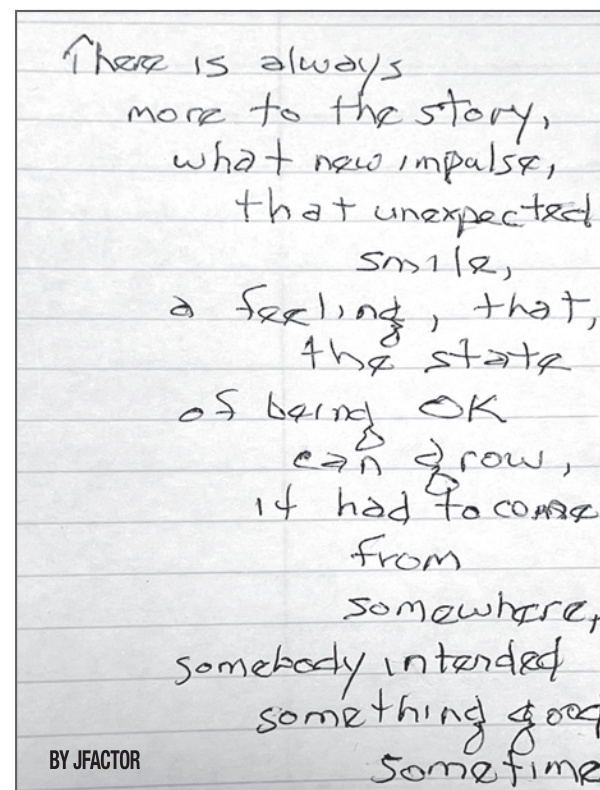 There is always
more to the story,
what new impulse,
that unexpected
smile,
a feeling, that,
the state
of being OK
can grow,
it had to come
from
somewhere,
somebody intended
something good
sometime
BY JFACTOR